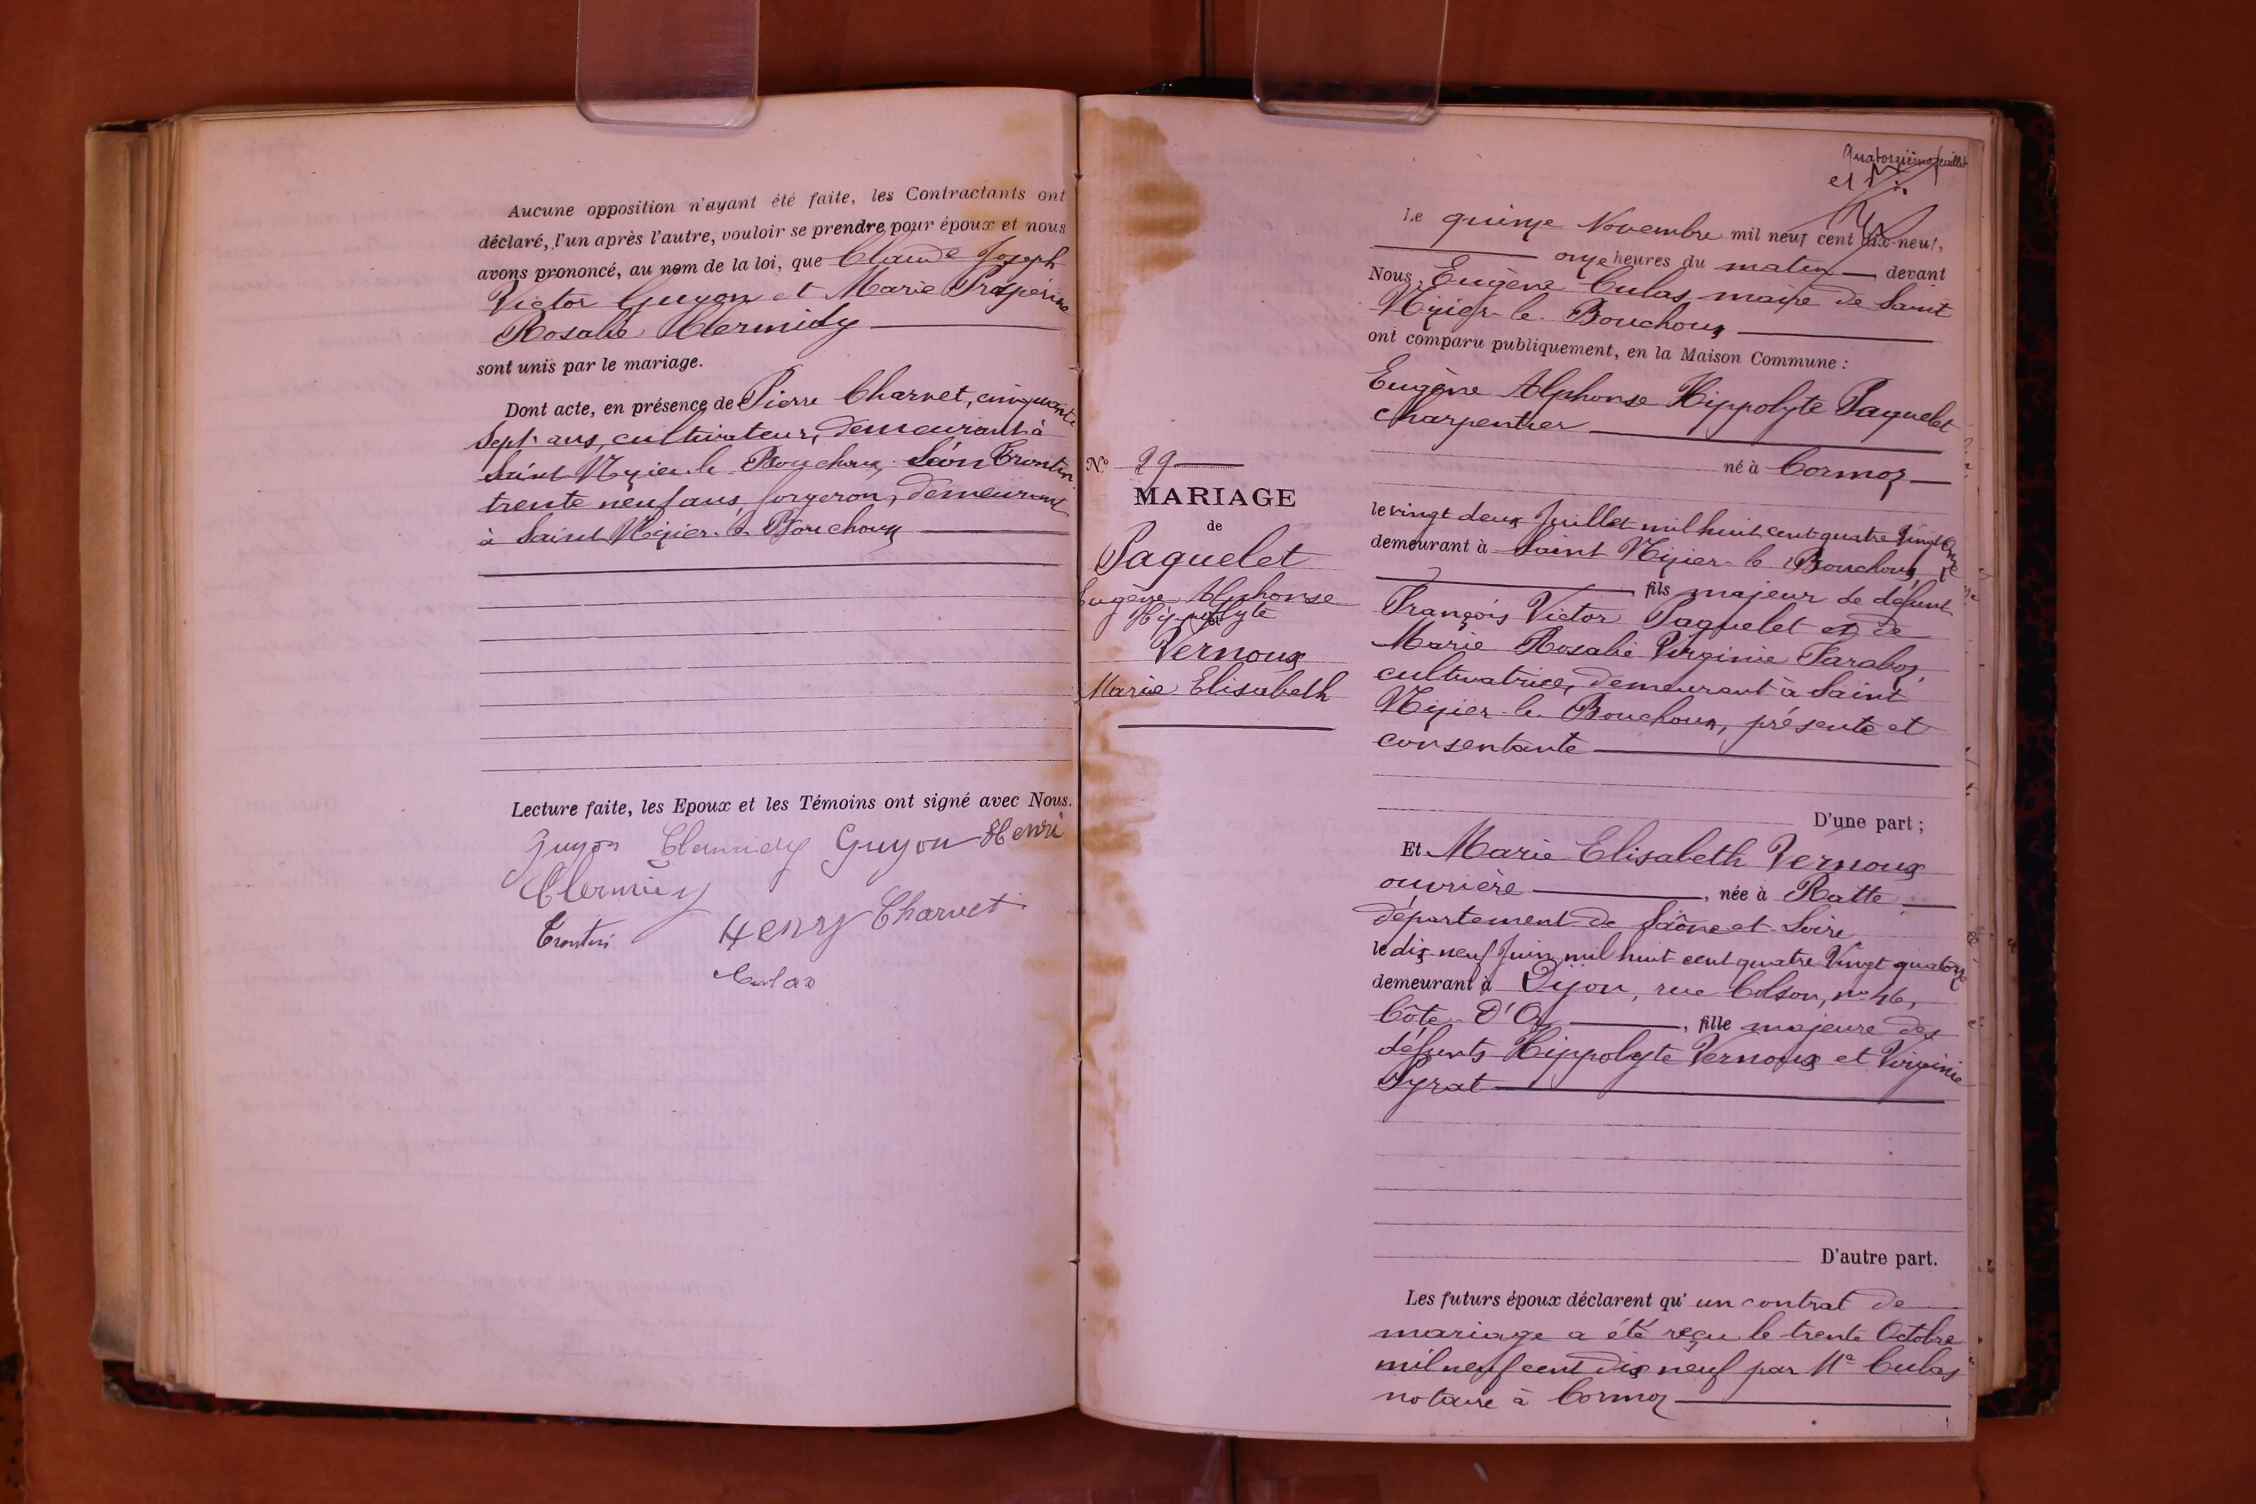 Aucune opposition n'ayant été faite, les Contractants ont
déclaré, l'un après l'autre, vouloir se prendre pour époux et nous
avons prononcé, au nom de la loi, que Claude Joseph
Victor Guyon et Marie
Rosalie Clermidy
sont unis par le mariage.
Dont acte, en présence de Pierre Charvet, cinquante
sept ans, cultivateur, demeurant à
Saint Nizier le Bouchoux, Léon Trontin
trente neuf ans, forgeron, demeurant
à Saint Nizier-le Bouchoux
Lecture faite, les Epoux et les Témoins ont signé avec Nous.
Guyon Clermidy Guyon Henri
Clermidy
Henry Charvet
Culas
Quatorzième feuillet
Le quinze Novembre mil neuf cent dix-neuf,
onze heures du matin devant
Nous, Eugène Culas, maire de Saint
Nizier-le-Bouchoux
ont comparu publiquement, en la Maison Commune :
Eugène Alphonse Hippolyte Paquelet
charpentier
né à Cormoz
le vingt deux Juillet mil huit cent quatre vingt onze
demeurant à Saint Nizier-le Bouchoux,
fils majeur de défunt
François Victor Paquelet et de
Marie Rosalie Virginie Taraboz,
cultivatrice, demeurant à Saint
Nizier-le-Bouchoux, présente et
consentante
D'une part ;
Et Marie Elisabeth Vernoux
ouvrière , née à Ratte
département de Saône et Loire
le dix-neuf Juin mil huit cent quatre Vingt quatorze
demeurant à Dijon, rue Colson, n° 46,
Côte-D'Or , fille majeure des
défunts Hippolyte Vernoux et Virginie
Pyrat
D'autre part.
Les futurs époux déclarent qu'un contrat de
mariage a été reçu le trente Octobre
mil neuf cent dix neuf par Me Culas
notaire à Cormoz
N° 29
MARIAGE
de
Paquelet
Eugène Alphonse
Hippolyte
Vernoux
Marie Elisabeth